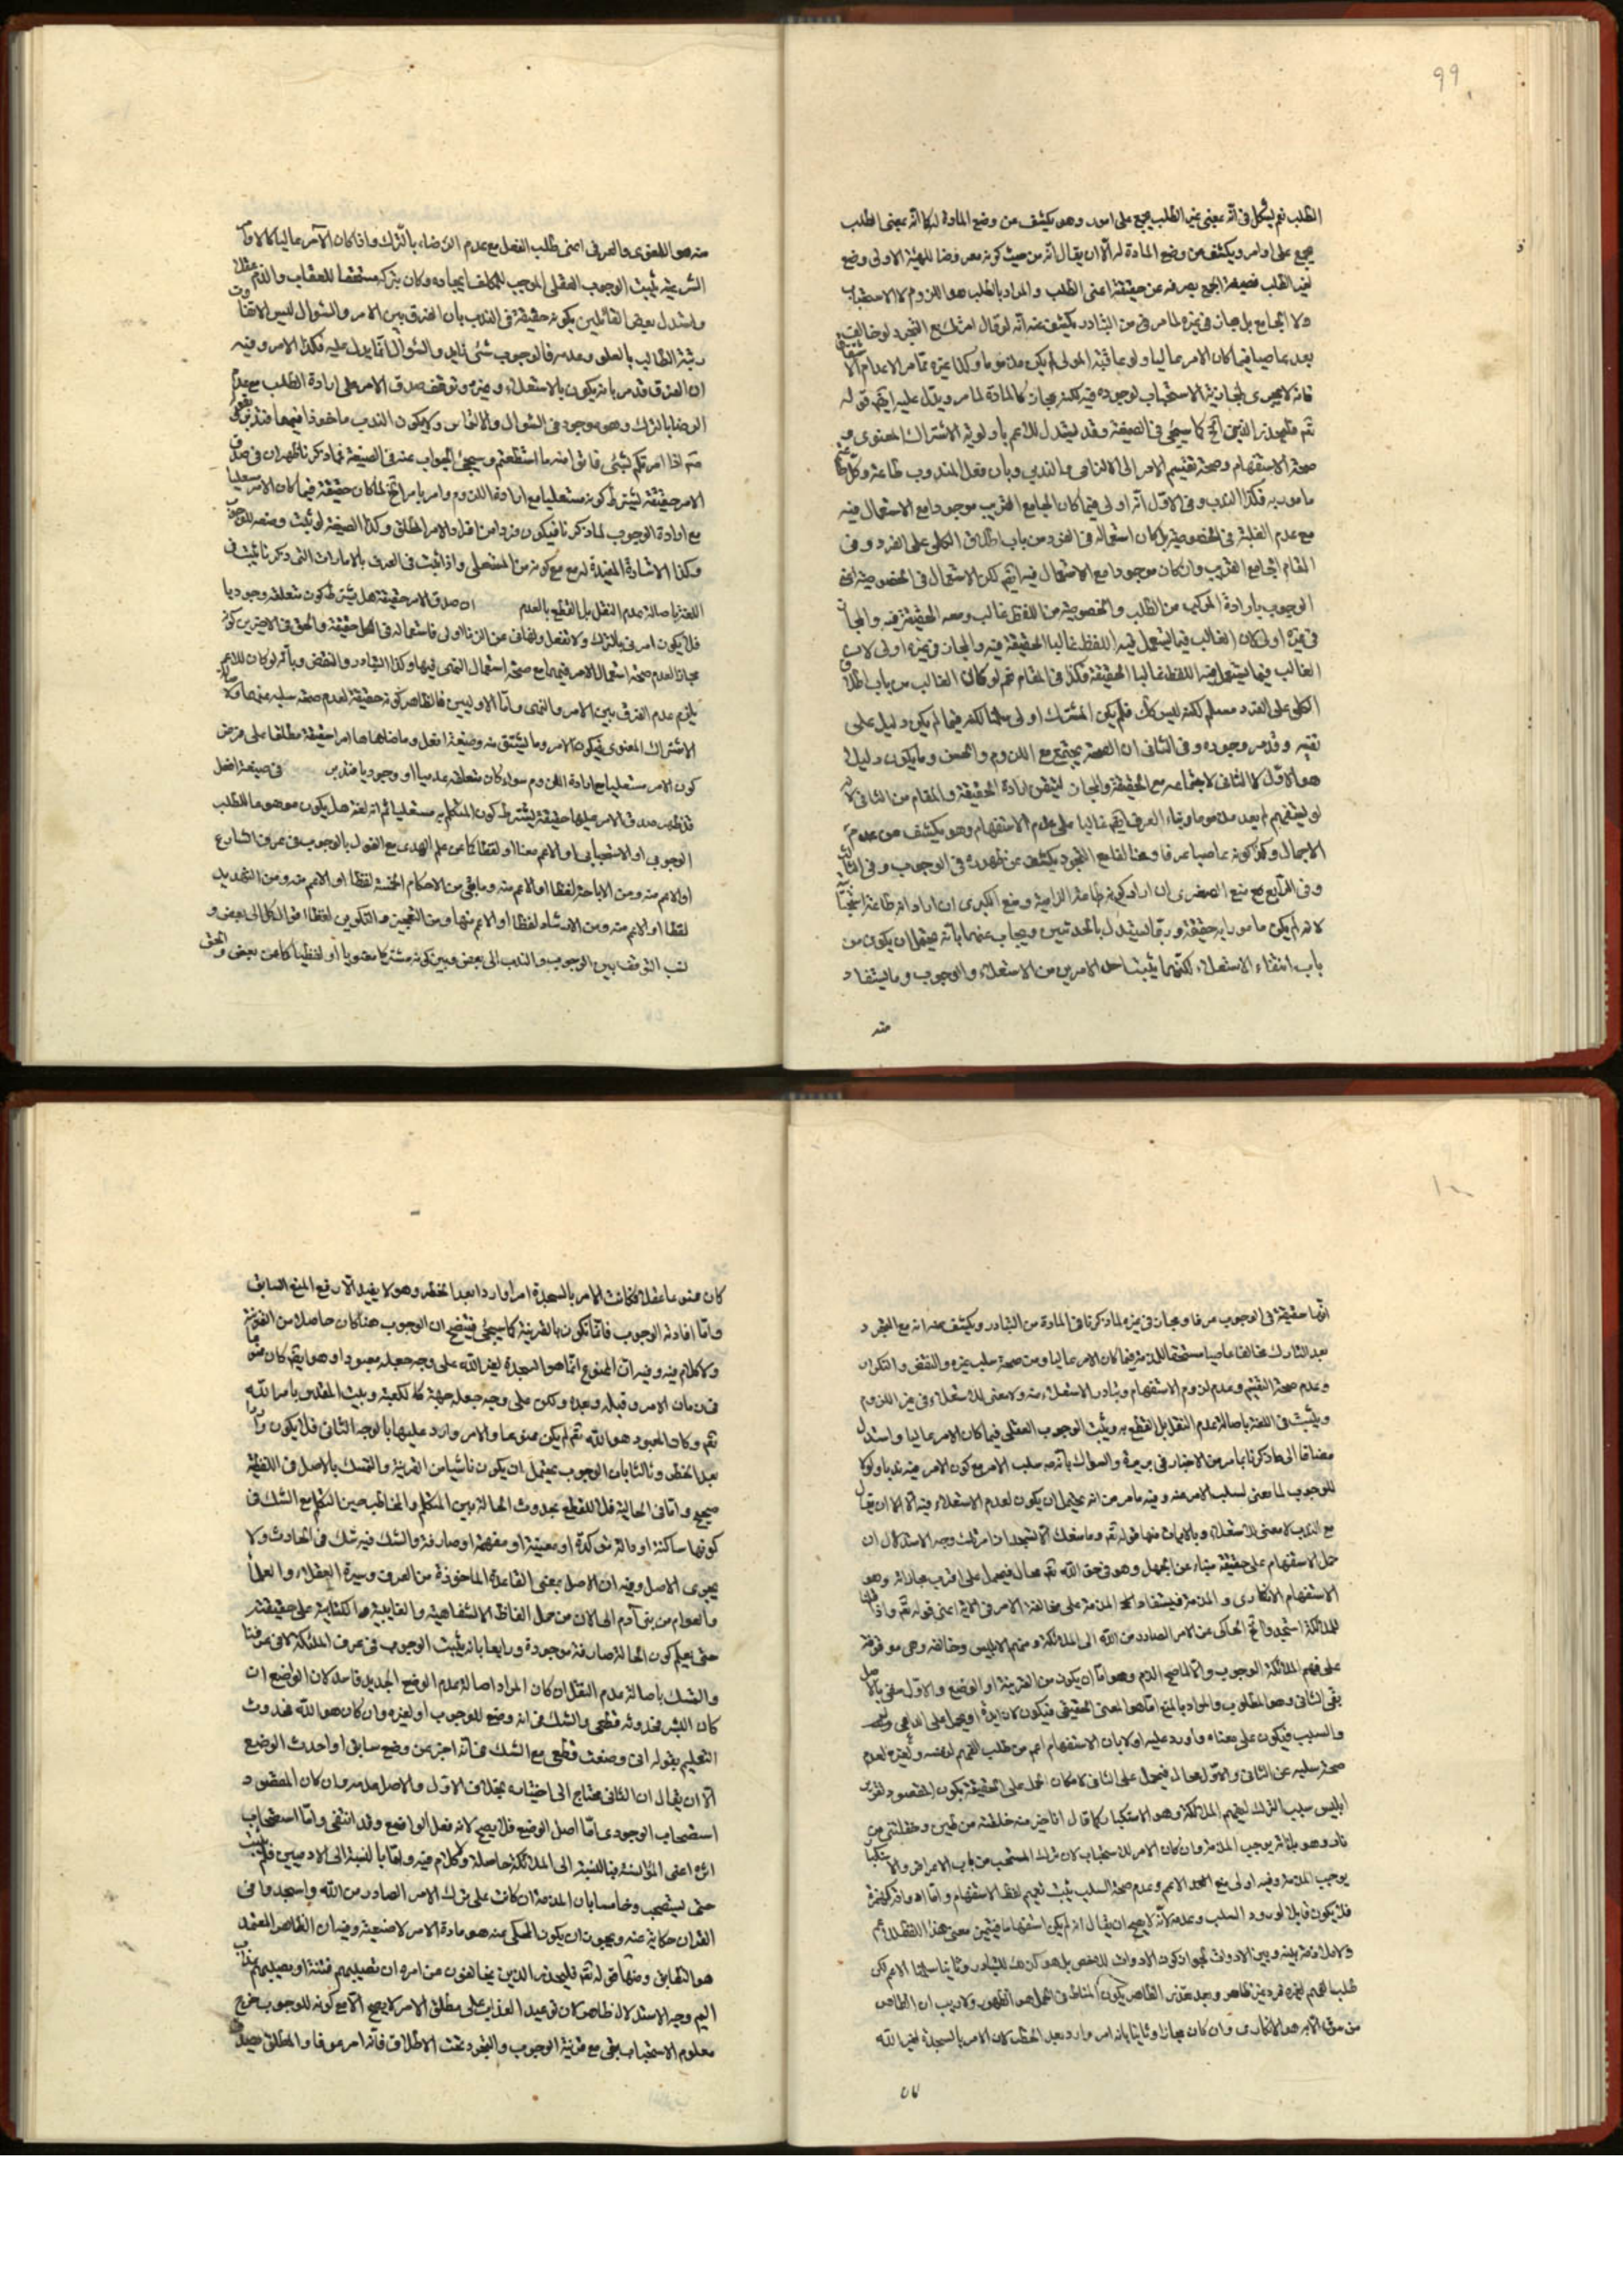 99
الطلب نعم يشكل فى انّه بمعنى غير الطلب يجمع على امور وهو يكشف عن وضع المادة له كما انّه بمعنى الطلب
يجمع على اوامر ويكشف عن وضع المادة له الّا ان يقال انّه من حيث كونه معروضا للهيئة الاولى وضع
لغير الطلب فصيغة الجمع يصرفه عن حقيقته اعنى الطلب والمراد بالطلب هو اللزوم لا الاستحباب
ولا الجامع بل مجاز فى غيره لما مر فى من التبادر يكشف عنه انّه لو قال امرتك مع التجرد لو خالف
يعد عاصيا فيما كان الامر عاليا ولو عاقبه المولى لم يكن مذموما وكذا غيره ممّا مر الا عدم
فانه لا يجرى لمجازية الاستحباب لوجوده فيه لكنه مجاز كالمادة لما مر ويدل عليه ايضا قوله
تع فليحذر الذين الخ كما سيجئ فى الصيغة وقد يستدل للاعم باولوية الاشتراك المعنوى و
صحة الاستفهام وصحة تقسيم الامر الى الالزامى والندبى وبان فعل المندوب طاعة وكل طا
مامور به فكذا الندب وفى الاول انّه اولى فيما كان الجامع القريب موجودا مع الاستعمال فيه
مع عدم الغلبة فى الخصوصية بل كان استعماله فى الفرد من باب اطلاق الكلى على الفرد وفى
المقام الجامع القريب وان كان موجودا مع الاستعمال فيه ايضا لكن الاستعمال فى الخصوصية اعنى
الوجوب بارادة المركب من الطلب والخصوصية من اللفظ غالب ومعه الحقيقة فيه والمجاز
فى غيره اولى لان الغالب فيما يستعمل فيه اللفظ غالبا الحقيقة فيه والمجاز فى غيره اولى لان
الغالب فيما يستعمل فيه اللفظ غالبا الحقيقة فكذا فى المقام نعم لو كان الغالب من باب اطلاق
الكلى على الفرد مسلم لكنه ليس كك فلم يكن المشترك اولى سلمنا لكنه فيما لم يكن دليل على
نفيه وقد مر وجوده وفى الثانى ان الصحة يجتمع مع اللزوم والحسن وما يكون دليلا
هو الاول لا الثانى لاجتماعه مع الحقيقة والمجاز ليتيقن ارادة الحقيقة والمقام من الثانى لانه
لو يستفهم لم يعد مذموما وبناء العرف ايضا غالبا على عدم الاستفهام وهو يكشف عن عدم
الاجمال وكذا كونه عاصيا عرفا وهنا لفا مع التجرد يكشف عن ظهوره فى الوجوب وفى الثالث
وفى الرابع مع منع الصغرى ان اراد كونه طاعة الزامية ومنع الكبرى ان اراد انه طاعة استحبابا
لانه لم يكن مامورا به حقيقة وربما يستدل بالحديثين ويجاب عنهما بانه يحتمل ان يكون من
باب انتفاء الاستعلاء لكنهما يثبتا احد الامرين من الاستعلاء والوجوب وما يستفاد
منه
منه هو اللغوى والعرفى اعنى طلب الفعل مع عدم الرضاء بالترك واذا كان الآمر عاليا كالاوامر
الشرعية يثبت الوجوب العقلى الموجب للمكلف ايجاده وكان بتركه مستحقا للعقاب والذم عقلا
واستدل بعض القائلين بكونه حقيقة فى الندب بان الفرق بين الامر والسؤال ليس الا تفاوت
رتبة الطالب بالعلو وعدمه فالوجوب شئ زايد والسؤال انما يدل عليه فكذا الامر وفيه
ان الفرق قد مر بانه يكون بالاستعلاء وغيره وتوقف صدق الامر على ارادة الطلب مع عدم
الرضا بالترك وهو موجود فى السؤال والالتماس ولا يكون الندب ماخوذا فيهما فتدبر بقوله
ص اذا امرتكم بشئ فاتوا منه ما استطعتم وسيجئ الجواب عنه فى الصيغة فما ذكرنا ظهر ان فى صدق
الامر حقيقة يشترط كونه مستعليا مع ارادة اللزوم وامر بامر الخ لما كان حقيقة فيما كان الامر مستعليا
مع ارادة الوجوب لما ذكرنا فيكون فردا من افراد الامر المطلق وكذا الصيغة لو ثبت وضعه للوجوب
وكذا الاشارة المفيدة له مع كونه من المستعلى واذا ثبت فى العرف بالامارات التى ذكرنا يثبت فى
اللغة باصالة عدم النقل بل القطع بالعدم ان صدق الامر حقيقة هل يشترط كون متعلقه وجوديا
فلا يكون امرنى بالترك ولا تفعل ونهانى عن الزنا اولى فاستعماله فى الكل حقيقة والحق فى الاخيرين كونه
مجازا لعدم صحة استعمال الامر فيهما مع صحة استعمال النهى فيها وكذا التبادر والنقض وبانه لو كان للاعم
يلزم عدم الفرق بين الامر والنهى واما الاوليين فالظاهر كونه حقيقة لعدم صحة سلبه عنهما
الاشتراك المعنوى فيكون الامر وما يشتق منه وصيغة افعل وما ضاهاها امرا حقيقة مطلقا على فرض
كون الامر مستعليا مع ارادة اللزوم سواء كان متعلقه عدميا او وجوديا فتدبر فى صيغة افعل
قد ظهر صدق الامر عليها حقيقة يشترط كون المتكلم به مستعليا ثم انه لغة هل يكون موضوعا للطلب
الوجوبى او الاستحبابى او الاعم معنا او لفظا كما عن علم الهدى مع القول بالوجوب فى عرف الشارع
او الاعم منه ومن الاباحة لفظا او الاعم منه وما بقى من الاحكام الخمسة لفظا او الاعم منه ومن التهديد
لفظا او الاعم منه ومن الارشاد لفظا او الاعم منها ومن التعجيز والتكوين لفظا اقوال الكل الى بعض و
نسب التوقف بين الوجوب والندب الى بعض وبين كونه مشتركا معنويا او لفظيا كما عن بعض والحق
١٠٠
انّها حقيقة فى الوجوب عرفا ومجاز فى غيره لما ذكرنا فى المادة من التبادر ويكشف عنه انه مع التجرد
يعد التارك مخالفا عاصيا مستحقا للذم فيما كان الامر عاليا ومن صحة سلب غيره والنقض والتكرار
وعدم صحة التقسيم وعدم لزوم الاستفهام وتبادر الاستعلاء منه ولا معنى للاستعلاء فى غير اللزوم
ويثبت فى اللغة باصالة عدم النقل بل القطع به ويثبت الوجوب العقلى فيما كان الامر عاليا واستدل
مضافا الى ما ذكرنا بما مر من الاخبار فى بريرة والسواك بانه سلب الامر مع كون الامر فيه ندبا ولولا
للوجوب لما معنى لسلب الامر عنه وفيه ما مر من انه يحتمل ان يكون لعدم الاستعلاء فيه الا ان يقال
مع الندب لا معنى للاستعلاء وبالايات منها قوله تع وما منعك الا تسجد اذ امرتك وجه الاستدلال ان
حمل الاستفهام على حقيقة ينباء عن الجهل وهو فى حق الله تع محال فيحمل على اقرب مجازاته وهو
الاستفهام الانكارى والمذمة فيستفاد المذمة على مخالفة الامر فى الاية اعنى قوله تع واذ قلنا
للملائكة اسجدوا الخ الحاكى عن الامر الصادر من الله الى الملائكة ومنهم الابليس وخالفه وهى موقوفة
على فهم الملائكة الوجوب والا لما صح الذم وهو اما ان يكون من القرينة او الوضع والاول منفى بالاصل
بقى الثانى وهو المطلوب والمراد بالمنع اما هو المعنى الحقيقى فيكون لا زايدة او يحمل على الداعى
والسبب فيكون على معناه واورد عليه اولا بان الاستفهام اعم من طلب الفهم لنفسه ولغيره لعدم
صحة سلبه عن الثانى والاول محال فيحمل على الثانى لامكان الحمل على الحقيقة بكون المقصود تقرير
ابليس سبب الترك ليفهم الملائكة وهو الاستكبار كما قال انا خير منه خلقته من طين وخلقتنى من
نار وهو بالنار يوجب المذمة وان كان الامر للاستحباب لان ترك المستحب من باب الاعراض والاستكبار
يوجب المذمة وفيه اولا منع الاعم وعدم صحة السلب يثبت تعميم لفظ الاستفهام
فلا يكون قابلا لورود السلب وعدمه لانه لا يصح ان يقال انه لم يكن استفهاما فيتبين معنى هذا اللفظ الاعم
ولا ملازمة بينه وبين الادوات لجواز كون الادوات للاخص بل هو كذلك للتبادر وثانيا سلمنا الاعم لكن
طلب الفهم لغيره فرد غير ظاهر وبعد تعذر الظاهر يكون المناط فى الحمل هو الظهور ولا ريب ان الظاهر
من سوق الاية هو الانكارى وان كان مجازا وثانيا بانه امر وارد بعد الحظر لان الامر بالسجدة لغير الله
كان
كان ممنوعا عقلا فكانت الامر بالسجدة امرا واردا بعد الحظر وهو لا يفيد الا رفع المنع السابق
واما افادته الوجوب فانما تكون بالقرينة كما سيجئ فيتضح ان الوجوب هنا كان حاصلا من القرينة
ولا كلام فيه وفيه ان الممنوع انما هو السجدة لغير الله على وجه جعله معبودا وهو ايضا كان ممنوعا
فى زمان الامر وقبله وبعده ولكن على وجه جعله جهة كالكعبة وبيت المقدس بامر الله
تع وكان المعبود هو الله تع لم يكن ممنوعا والامر وارد عليها بالوجه الثانى فلا يكون واردا
بعد الحظر وثالثا بان الوجوب يحتمل ان يكون ناشيا من القرينة والتمسك بالاصل فى اللفظية
صحيح واما فى الحالية فلا للقطع بحدوث الحالة بين المتكلم والمخاطب حين التكلم مع الشك فى
كونها ساكنة او مؤكدة او معينة او مفهمة او صارفة والشك فيه شك فى الحادث ولا
يجرى الاصل وفيه ان الاصل بمعنى القاعدة الماخوذة من العرف وسيرة العقلاء والعلماء
والعوام من بنى آدم الى الان من حمل الفاظ الاستفاهية والغايبية والكتابية على حقيقته
حتى يعلم كون الحالة صارفة موجودة ورابعا بانه يثبت الوجوب فى عرف الملائكة لا فى عرفنا
والتمسك باصالة عدم النقل ان كان المراد اصالة عدم الوضع الجديد فاسد لان الواضع ان
كان البشر فحدوثه قطعى والشك فى انه وضع للوجوب او لغيره وان كان هو الله فحدوث
التعليم بقوله انى وضعت قطعى مع الشك فى انه اخبر عن وضع سابق او احدث الوضع
الا ان يقال ان الثانى يحتاج الى اختيابه بخلاف الاول والاصل عدمه وان كان المقصود
استصحاب الوجودى اما اصل الوضع فلا يصح لانه فعل الواضع وقد انتفى واما استصحاب
اثره اعنى الموانسة فبالنسبة الى الملائكة حاصلة ولا كلام فيه واما بالنسبة الى الادميين فلم يثبت
حتى يستصحب وخامسا بان المذمة ان كانت على ترك الامر الصادر من الله واسجدوا فى
القران حكاية عنه ويجوز ان يكون المحكى عنه هو مادة الامر لا صيغته وفيه ان الظاهر المعتمد
هو التطابق ومنها قوله تع فليحذر الذين يخالفون عن امره ان تصيبهم فتنة او يصيبهم عذاب
اليم وجه الاستدلال ظاهر كان توعيد العذاب على مطلق الامر لا يصح الا مع كونه للوجوب خرج
معلوم الاستحباب بقى مع قرينة الوجوب والتجرد تحت الاطلاق فانه امر عرفا والمطلق